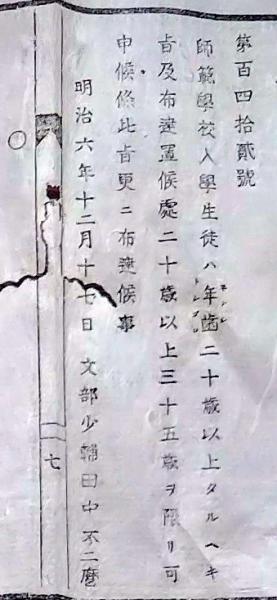 第百四拾貳號
師範學校入學生徒ハ年齒二十歲以上タルヘキ
旨及布達置候處二十歲以上三十五歲ヲ限リ可
申候條此旨更ニ布達候事
明治六年十二月十七日 文部少輔田中不二麿
二七